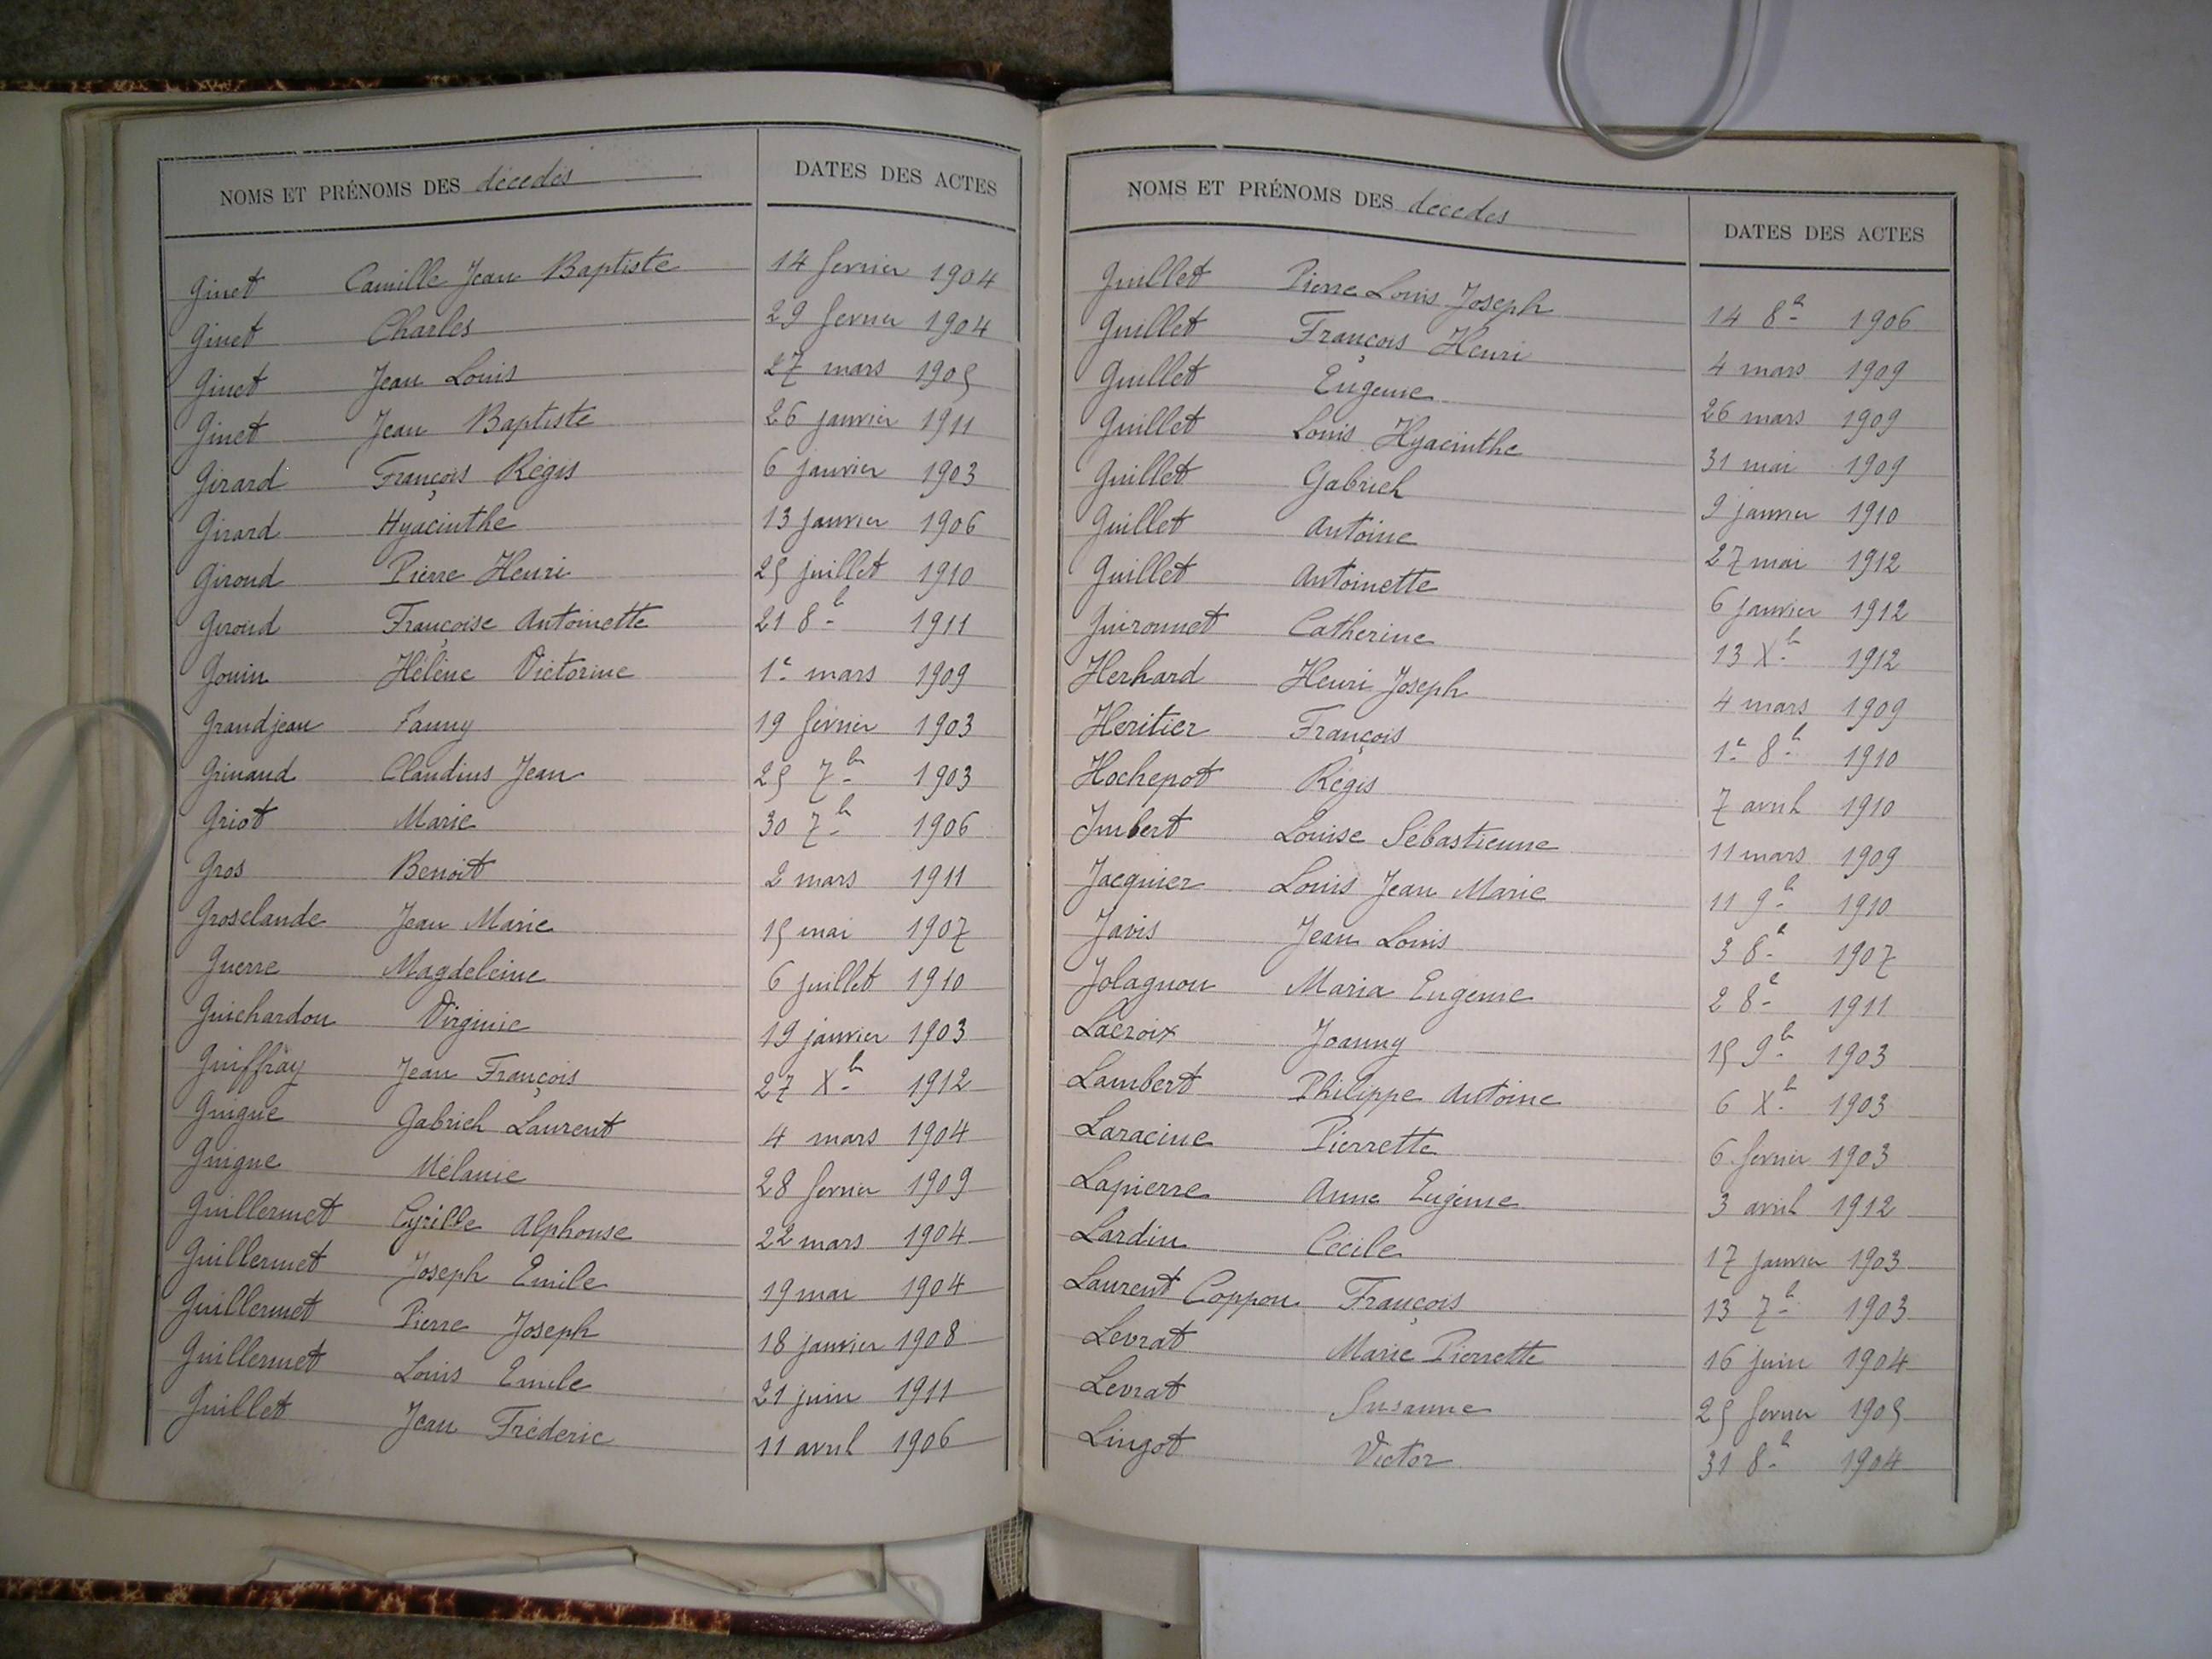 NOMS ET PRÉNOMS DES décédés DATES DES ACTES
Ginet Camille Jean Baptiste 14 fevrier 1904
Ginet Charles 29 fevrier 1904
Ginet Jean Louis 27 mars 1905
Ginet Jean Baptiste 26 janvier 1911
Girard François Régis 6 janvier 1903
Girard Hyacinthe 13 janvier 1906
Giroud Pierre Henri 25 juillet 1910
Giroud Françoise Antoinette 21 8b 1911
Gouin Hélène Victorine 1r mars 1909
Grandjean Fanny 19 février 1903
Grinand Claudius Jean 25 7b 1903
Griot Marie 30 7b 1906
Gros Benoit 2 mars 1911
Grosclaude Jean Marie 15 mai 1907
Guerre Magdeleine 6 juillet 1910
Guichardon Virginie 19 janvier 1903
Guiffray Jean François 27 Xb 1912
Guigue Gabriel Laurent 4 mars 1904
Guigue Mélanie 28 fevrier 1909
Guillermet Cyrille Alphonse 22 mars 1904
Guillermet Joseph Emile 19 mai 1904
Guillermet Pierre Joseph 18 janvier 1908
Guillermet Louis Emile 21 juin 1911
Guillet Jean Fréderic 11 avril 1906
NOMS ET PRÉNOMS DES décédés DATES DES ACTES
Guillet Pierre Louis Joseph 14 8b 1906
Guillet François Henri 4 mars 1909
Guillet Eugenie 26 mars 1909
Guillet Louis Hyacinthe 31 mai 1909
Guillet Gabriel 9 janvier 1910
Guillet Antoine 27 mai 1912
Guillet Antoinette 6 janvier 1912
Guironnet Catherine 13 Xb 1912
Herhard Henri Joseph 4 mars 1909
Héritier François 1r 8b 1910
Hochepot Régis 7 avril 1910
Imbert Louise Sébastienne 11 mars 1909
Jacquier Louis Jean Marie 11 9b 1910
Javis Jean Louis 3 8b 1907
Jolagnon Maria Eugenie 2 8b 1911
Lacroix Joanny 15 9b 1903
Lambert Philippe Antoine 6 Xb 1903
Laracine Pierrette 6 fevrier 1903
Lapierre Anne Eugénie 3 avril 1912
Lardin Cécile 17 janvier 1903
Laurent Coppon François 13 7b 1903
Levrat Marie Pierrette 16 juin 1904
Levrat Susanne 25 fevrier 1905
Lingot Victor 31 8b 1904